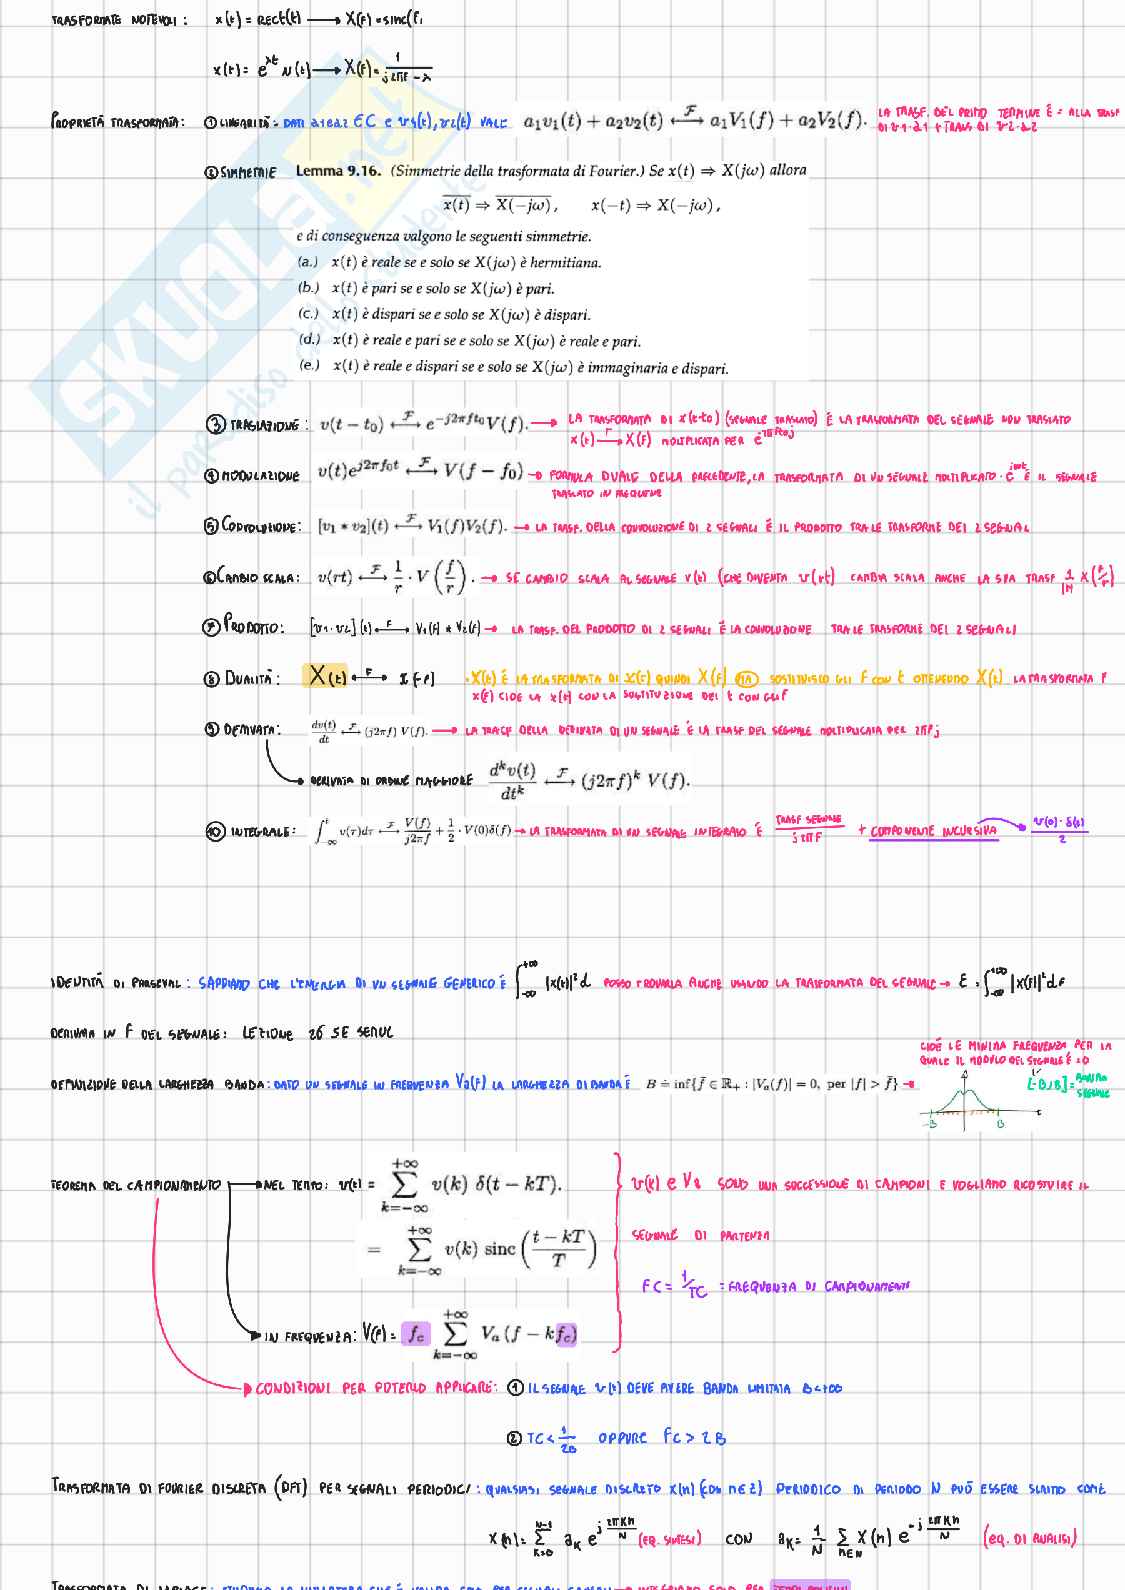 TRASFORMATE NOTEVOLI: x(t) = RECT(t) → X(f) = sinc(f)
x(t) = e^{λt} u(t) → X(f) = 1/(j2πf - λ)
PROPRIETÀ TRASFORMATA: ① LINEARITÀ: DATI a1 e a2 ∈ C e v1(t), v2(t) VALE a₁v₁(t) + a₂v₂(t) ⟷F a₁V₁(f) + a₂V₂(f). LA TRASF. DEL PRIMO TERMINE È = ALLA TRASF
DI v1·a1 + TRASF DI v2·a2
② SIMMETRIE Lemma 9.16. (Simmetrie della trasformata di Fourier.) Se x(t) ⇒ X(jω) allora
x̅(̅t̅)̅ ⇒ X̅(̅-̅j̅ω̅)̅, x(-t) ⇒ X(-jω),
e di conseguenza valgono le seguenti simmetrie.
(a.) x(t) è reale se e solo se X(jω) è hermitiana.
(b.) x(t) è pari se e solo se X(jω) è pari.
(c.) x(t) è dispari se e solo se X(jω) è dispari.
(d.) x(t) è reale e pari se e solo se X(jω) è reale e pari.
(e.) x(t) è reale e dispari se e solo se X(jω) è immaginaria e dispari.
③ TRASLAZIONE: v(t - t₀) ⟷F e^{-j2πft₀}V(f). → LA TRASFORMATA DI x(t-t0) (SEGNALE TRASLATO) È LA TRASFORMATA DEL SEGNALE NON TRASLATO
x(t) →F X(f) MOLTIPLICATA PER
④ MODULAZIONE v(t)e^{j2πf₀t} ⟷F V(f - f₀) → FORMULA DUALE DELLA PRECEDENTE, LA TRASFORMATA DI UN SEGNALE MOLTIPLICATO · È IL SEGNALE
TRASLATO IN FREQUENZE
⑤ CONVOLUZIONE: [v₁ * v₂](t) ⟷F V₁(f)V₂(f). → LA TRASF. DELLA CONVOLUZIONE DI 2 SEGNALI È IL PRODOTTO TRA LE TRASFORME DEI 2 SEGNALI
⑥ CAMBIO SCALA: v(rt) ⟷F 1/r · V(f/r). → SE CAMBIO SCALA AL SEGNALE V(t) (CHE DIVENTA v(rt) CAMBIA SCALA ANCHE LA SUA TRASF 1/|r| X(f/r)
⑦ PRODOTTO: [v1·v2](t) ⟷F V1(f) * V2(f) → LA TRASF. DEL PRODOTTO DI 2 SEGNALI È LA CONVOLUZIONE TRA LE TRASFORME DEI 2 SEGNALI
⑧ DUALITÀ: X(t) ⟷F x[-f] · X(t) È LA TRASFORMATA DI x(t) QUINDI X(f) MA SOSTITUISCO GLI F CON t OTTENENDO X(t) LA TRASFORMATA È
x(f) CIOÈ LA x(t) CON LA SOSTITUZIONE DEI t CON GLI f
⑨ DERIVATA: dv(t)/dt ⟷F (j2πf) V(f). → LA TRASF DELLA DERIVATA DI UN SEGNALE È LA TRASF DEL SEGNALE MOLTIPLICATA PER 2πfj
DERIVATA DI ORDINE MAGGIORE d^k v(t)/dt^k ⟷F (j2πf)^k V(f).
⑩ INTEGRALE: ∫_{-∞}^{t} v(τ)dτ ⟷F V(f)/j2πf + 1/2 · V(0)δ(f) → LA TRASFORMATA DI UN SEGNALE INTEGRATO È TRASF SEGNALE/j2πf + COMPONENTE IMPULSIVA → v(0)·δ(t)/2
IDENTITÀ DI PARSEVAL: SAPPIAMO CHE L'ENERGIA DI UN SEGNALE GENERICO È ∫_{-∞}^{+∞} |x(t)|² d POSSO TROVARLA ANCHE USANDO LA TRASFORMATA DEL SEGNALE → E = ∫_{-∞}^{+∞} |X(f)|² df
DERIVATA IN F DEL SEGNALE: LEZIONE 26 SE SERVE
CIOÈ LE MINIMA FREQUENZA PER LA
QUALE IL MODULO DEL SEGNALE È =0
DEFINIZIONE DELLA LARGHEZZA BANDA: DATO UN SEGNALE IN FREQUENZA Va(f) LA LARGHEZZA DI BANDA È B ≐ inf{f̄ ∈ ℝ₊ : |Va(f)| = 0, per |f| > f̄} → [-B,B] = BANDA SEGNALE
-B B
TEOREMA DEL CAMPIONAMENTO → NEL TEMPO: v(t) = Σ_{k=-∞}^{+∞} v(k) δ(t - kT). v(k) e Va SONO UNA SUCCESSIONE DI CAMPIONI E VOGLIAMO RICOSTRUIRE IL
SEGNALE DI PARTENZA
= Σ_{k=-∞}^{+∞} v(k) sinc((t - kT)/T)
FC = 1/TC = FREQUENZA DI CAMPIONAMENTI
IN FREQUENZA: V(f) = f_c Σ_{k=-∞}^{+∞} V_a(f - kf_c)
CONDIZIONI PER POTERLO APPLICARE: ① IL SEGNALE v(t) DEVE AVERE BANDA LIMITATA B<+∞
② TC < 1/2B OPPURE FC > 2B
TRASFORMATA DI FOURIER DISCRETA (DFT) PER SEGNALI PERIODICI: QUALSIASI SEGNALE DISCRETO X(n) (CON n∈Z) PERIODICO DI PERIODO N PUÒ ESSERE SCRITTO COME
X(n) = Σ_{k=0}^{N-1} a_k e^{j 2πkn/N} (EQ. SINTESI) CON a_k = 1/N Σ_{n∈N} X(n) e^{-j 2πkn/N} (EQ. DI ANALISI)
SKUOLA.net
il paradiso dello studente